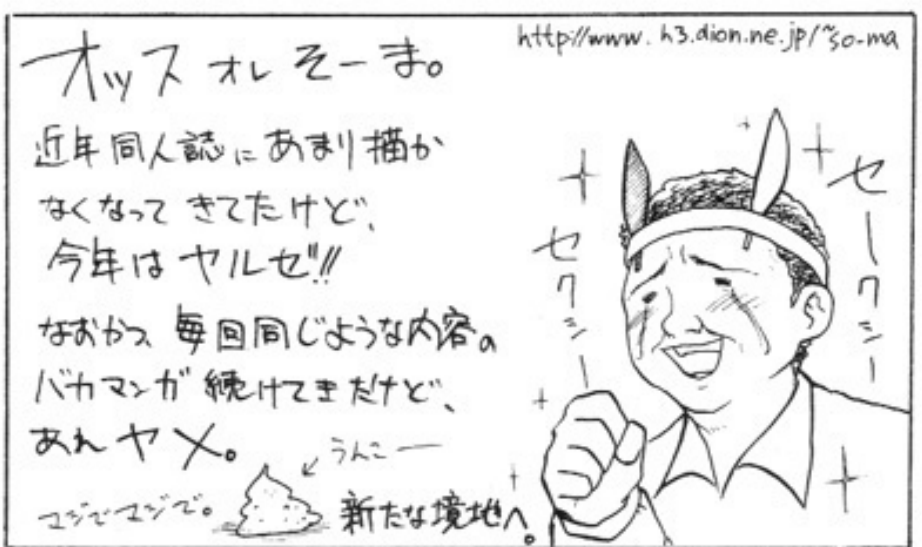 http://www.h3.dion.ne.jp/~so-ma
オッス オレ そーま。
近年同人誌にあまり描か
なくなって きてたけど、
今年は ヤルゼ!!
なおかつ、毎回同じような内容の
バカマンガ 続けてきだけど、
あれ ヤメ。
うんこー
マジでマジで。
新たな境地へ。
セークシー
セクシー